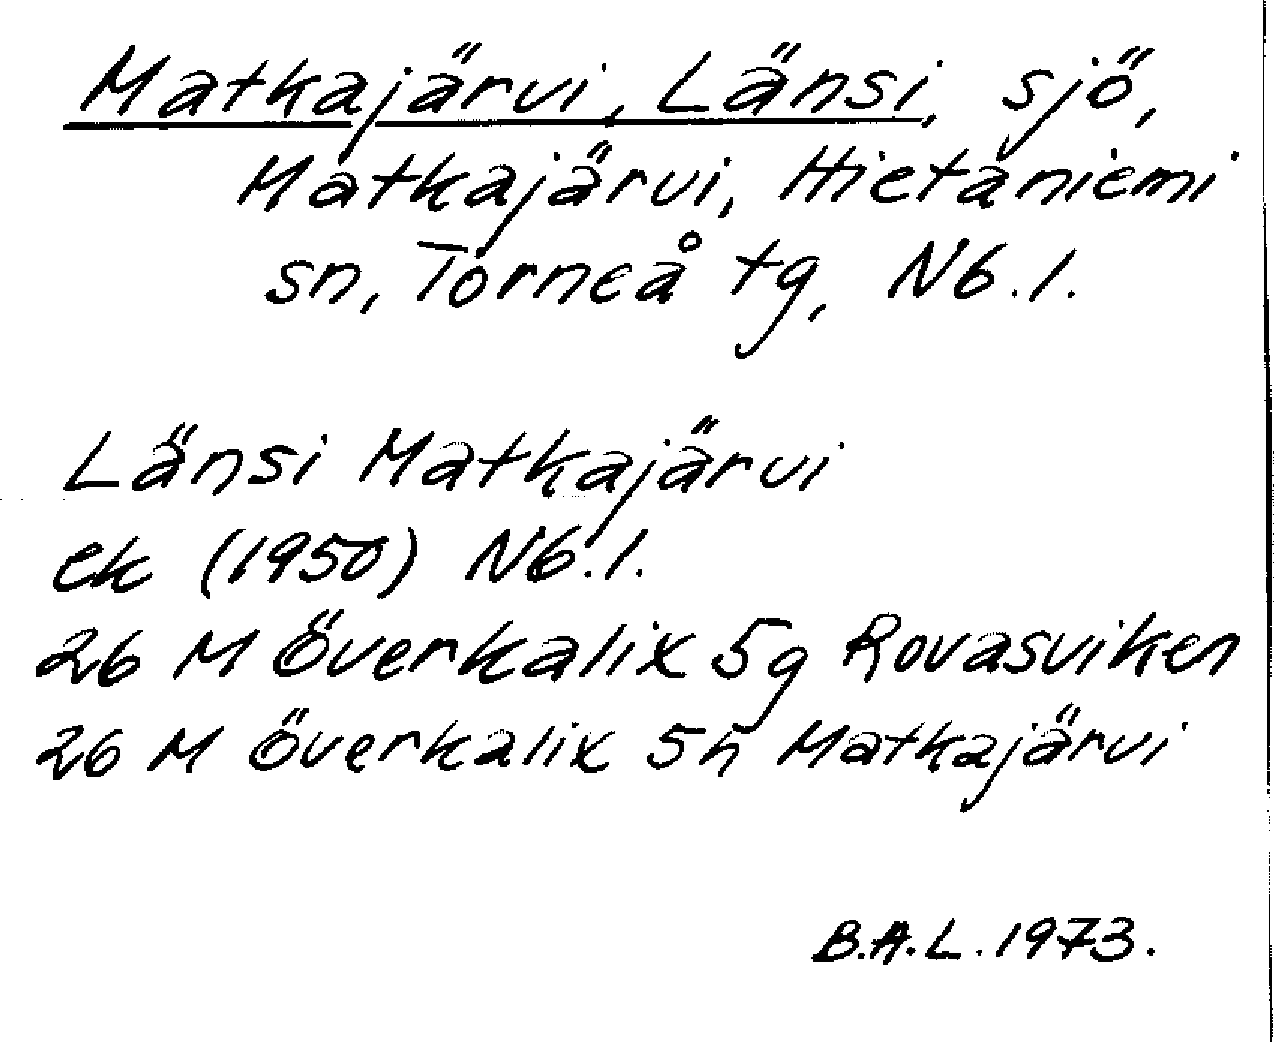 Matkajärvi, Länsi, sjö,
Matkajärvi, Hietaniemi
sn, Torneå tg, Nb.l.
Länsi Matkajärvi
ek (1950) Nb.l.
26 M Överkalix 5g Rovasviken
26 M Överkalix 5h Matkajärvi
B.A.L. 1973.